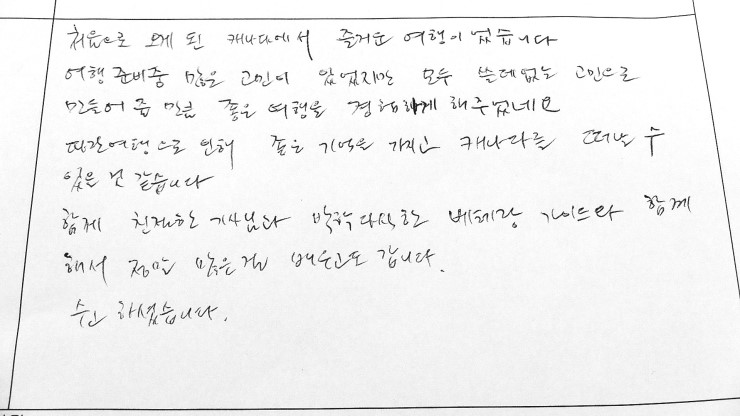 처음으로 오게 된 캐나다에서 즐거운 여행이 었습니다
여행 준비중 많은 고민이 있었지만 모두 쓸데없는 고민으로
만들어 줄 만큼 좋은 여행을 경험하게 해주었네요
여행으로 인해 좋은 기억을 가지고 캐나다를 떠날 수
있을 것 같습니다
함께 친절하신 기사님과 박학다식한 베테랑 가이드와 함께
해서 정말 많은걸 배우고도 갑니다.
수고 하셨습니다.